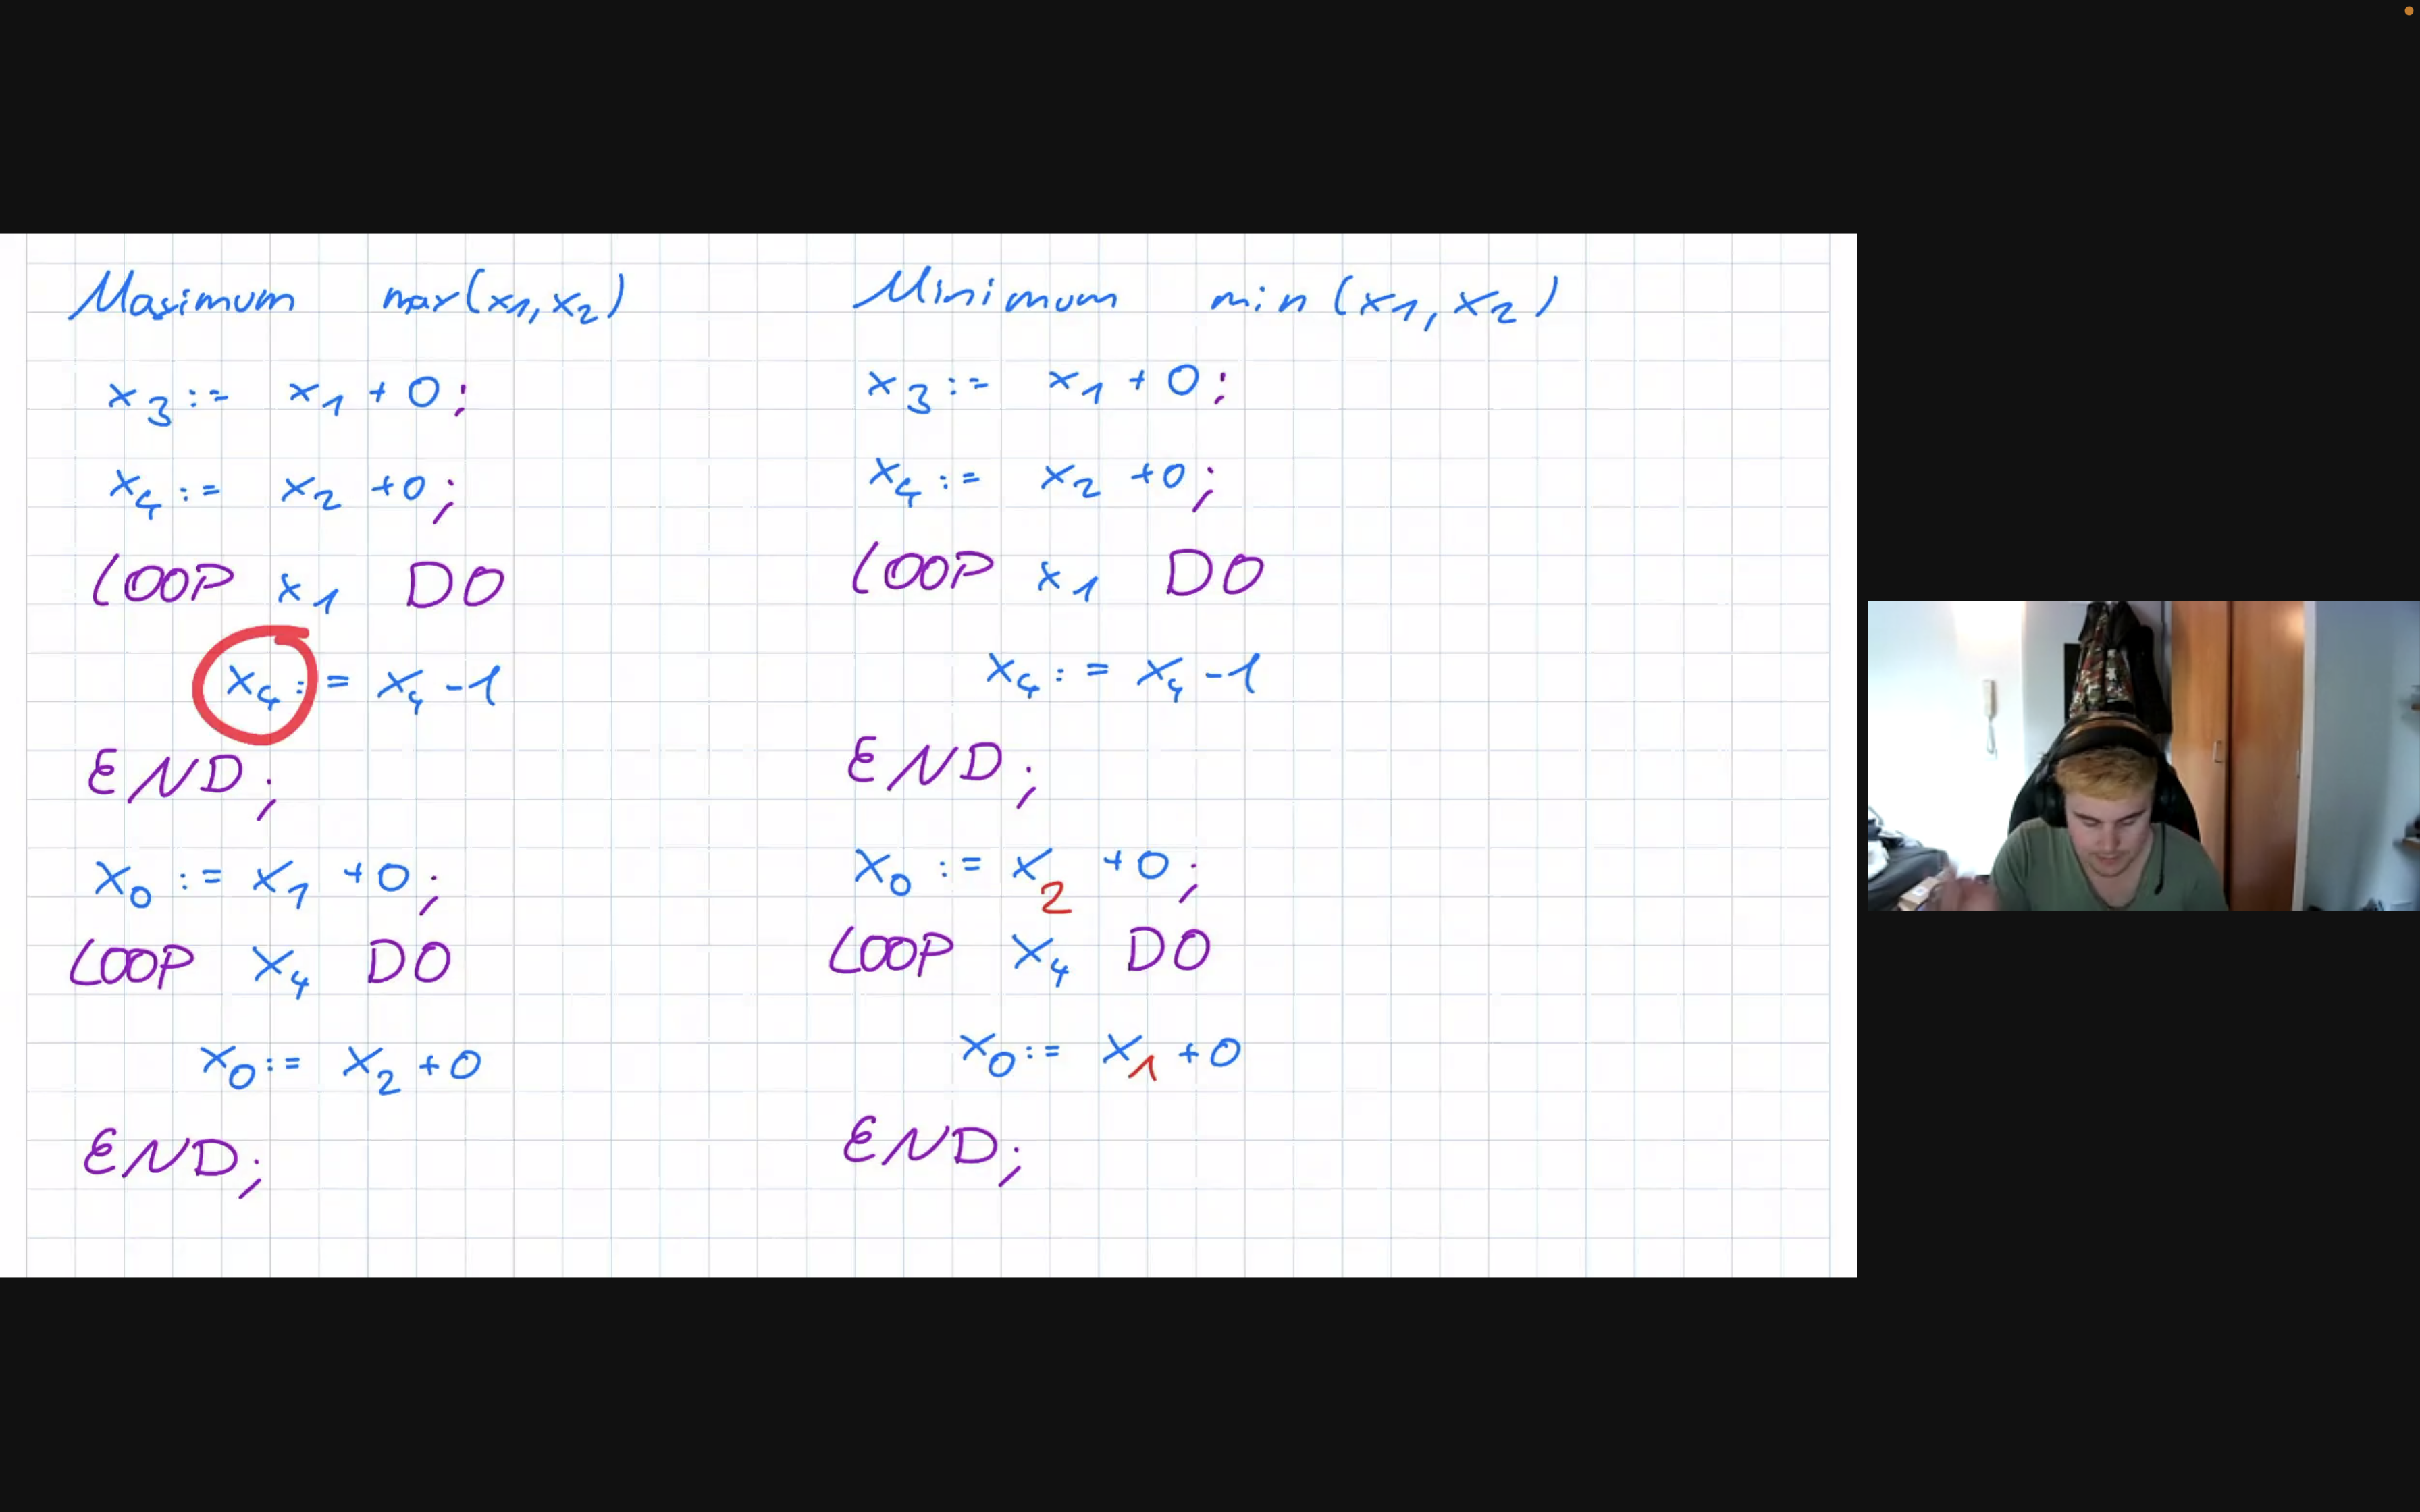 Maximum max(x1, x2)
x3 := x1 + 0;
x4 := x2 + 0;
LOOP x1 DO
x4 := x4 - 1
END;
x0 := x1 + 0;
LOOP x4 DO
x0 := x2 + 0
END;
Minimum min(x1, x2)
x3 := x1 + 0;
x4 := x2 + 0;
LOOP x1 DO
x4 := x4 - 1
END;
x0 := x2 + 0;
LOOP x4 DO
x0 := x1 + 0
END;